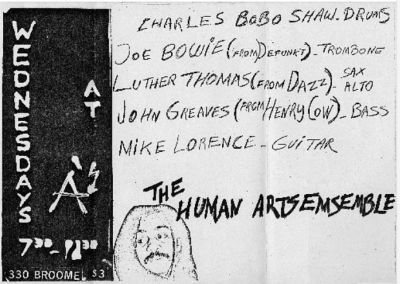 WEDNESDAYS
AT
A's
7³⁰-
330 BROOME $3
CHARLES BOBO SHAW. DRUMS
JOE BOWIE (FROM DEFUNKT) - TROMBONE
LUTHER THOMAS (FROM DAZZ) - SAX ALTO
JOHN GREAVES (FROM HENRY COW) - BASS
MIKE LORENCE - GUITAR
THE
HUMAN ARTS EMSEMBLE